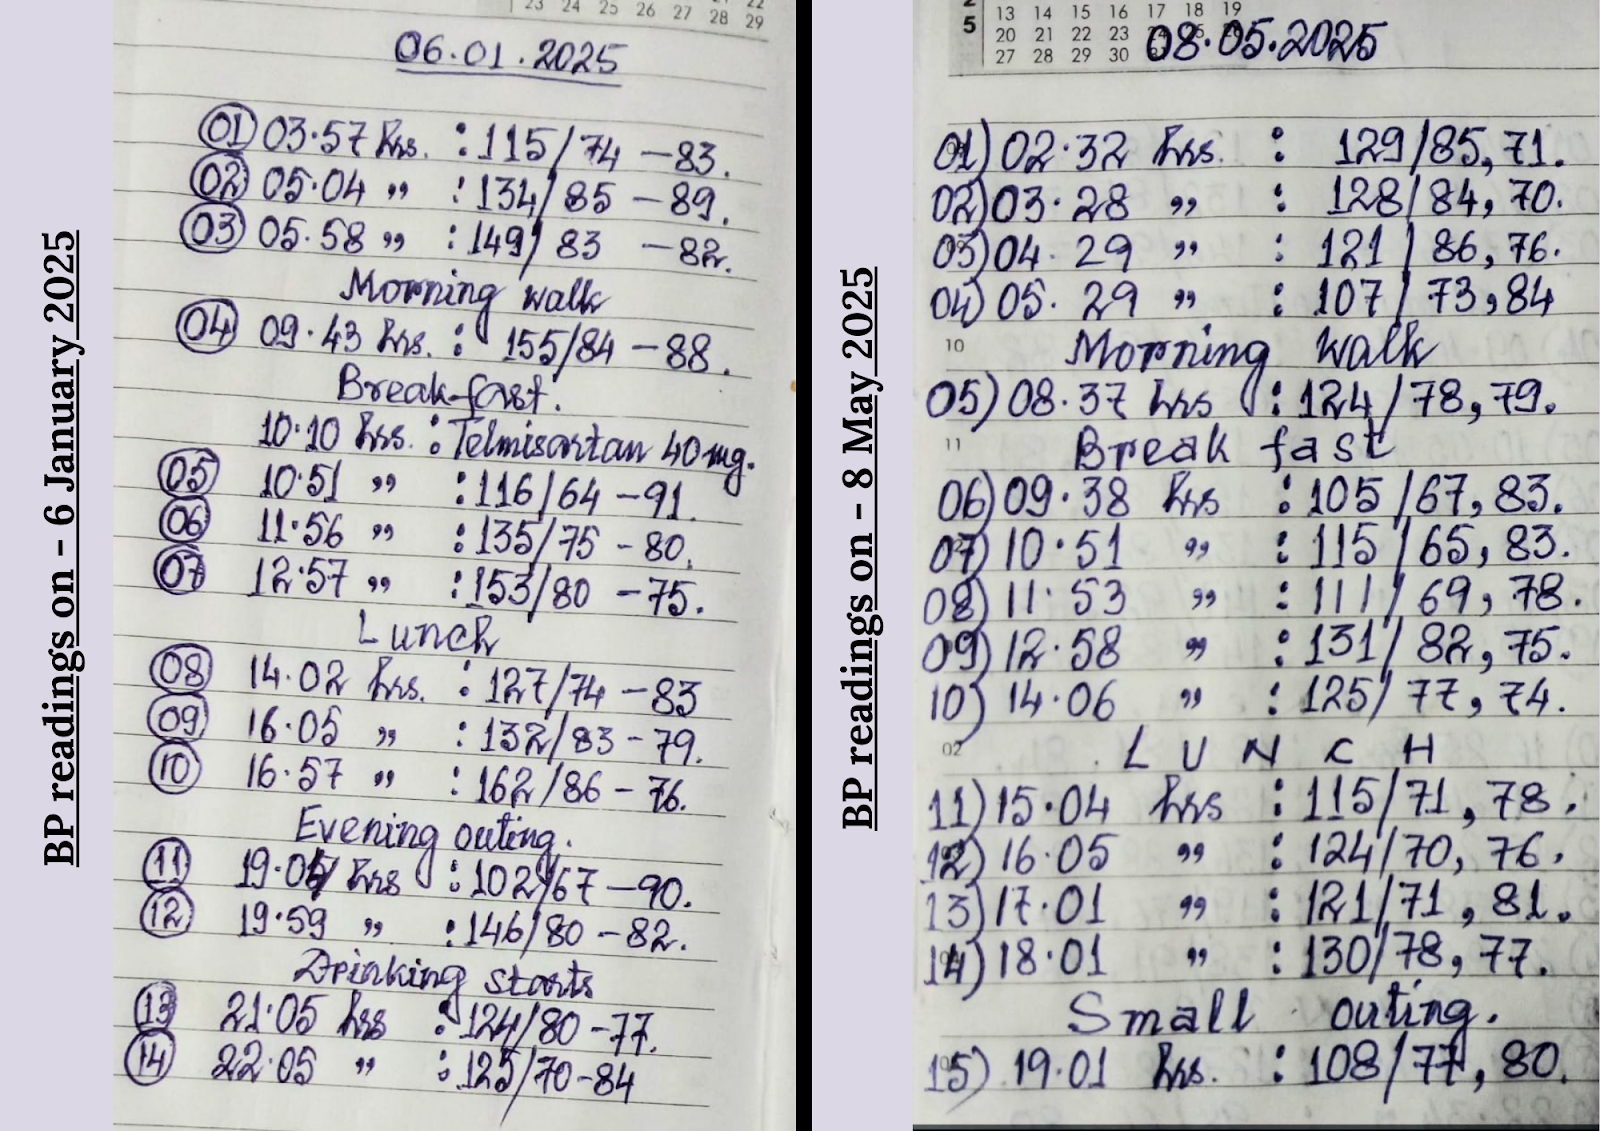 BP readings on - 6 January 2025
23 24 25 26 27 28 29
22
06.01.2025
01 03.57 hrs. : 115/74 – 83.
02 05.04 ,, : 134/85 – 89.
03 05.58 ,, : 149/83 – 82.
Morning walk
04 09.43 hrs. : 155/84 – 88.
Break-fast.
10.10 hrs. : Telmisartan 40 mg.
05 10.51 ,, : 116/64 – 91.
06 11.56 ,, : 135/75 - 80.
07 12.57 ,, : 153/80 – 75.
Lunch
08 14.02 hrs. : 127/74 – 83
09 16.05 ,, : 132/83 - 79.
10 16.57 ,, : 162/86 - 76.
Evening outing.
11 hrs : 102/67 – 90.
12 19.59 ,, : 146/80 - 82.
Drinking starts
13 21.05 hrs : 124/80 - 77.
14 22.05 ,, : 125/70 - 84
BP readings on - 8 May 2025
5
13 14 15 16 17 18 19
20 21 22 23
27 28 29 30
08.05.2025
01) 02.32 hrs. : 129/85, 71.
02) 03.28 ,, : 128/84, 70.
03) 04.29 ,, : 121/86, 76.
04) 05.29 ,, : 107/73, 84
10 Morning walk
05) 08.37 hrs : 124/78, 79.
11 Break fast
06) 09.38 hrs : 105/67, 83.
07) 10.51 ,, : 115/65, 83.
08) 11.53 ,, : 111/69, 78.
09) 12.58 ,, : 131/82, 75.
10) 14.06 ,, : 125/77, 74.
02 LUNCH
11) 15.04 hrs : 115/71, 78.
12) 16.05 ,, : 124/70, 76.
13) 17.01 ,, : 121/71, 81.
14) 18.01 ,, : 130/78, 77.
Small outing.
15) 19.01 hrs. : 108/77, 80.